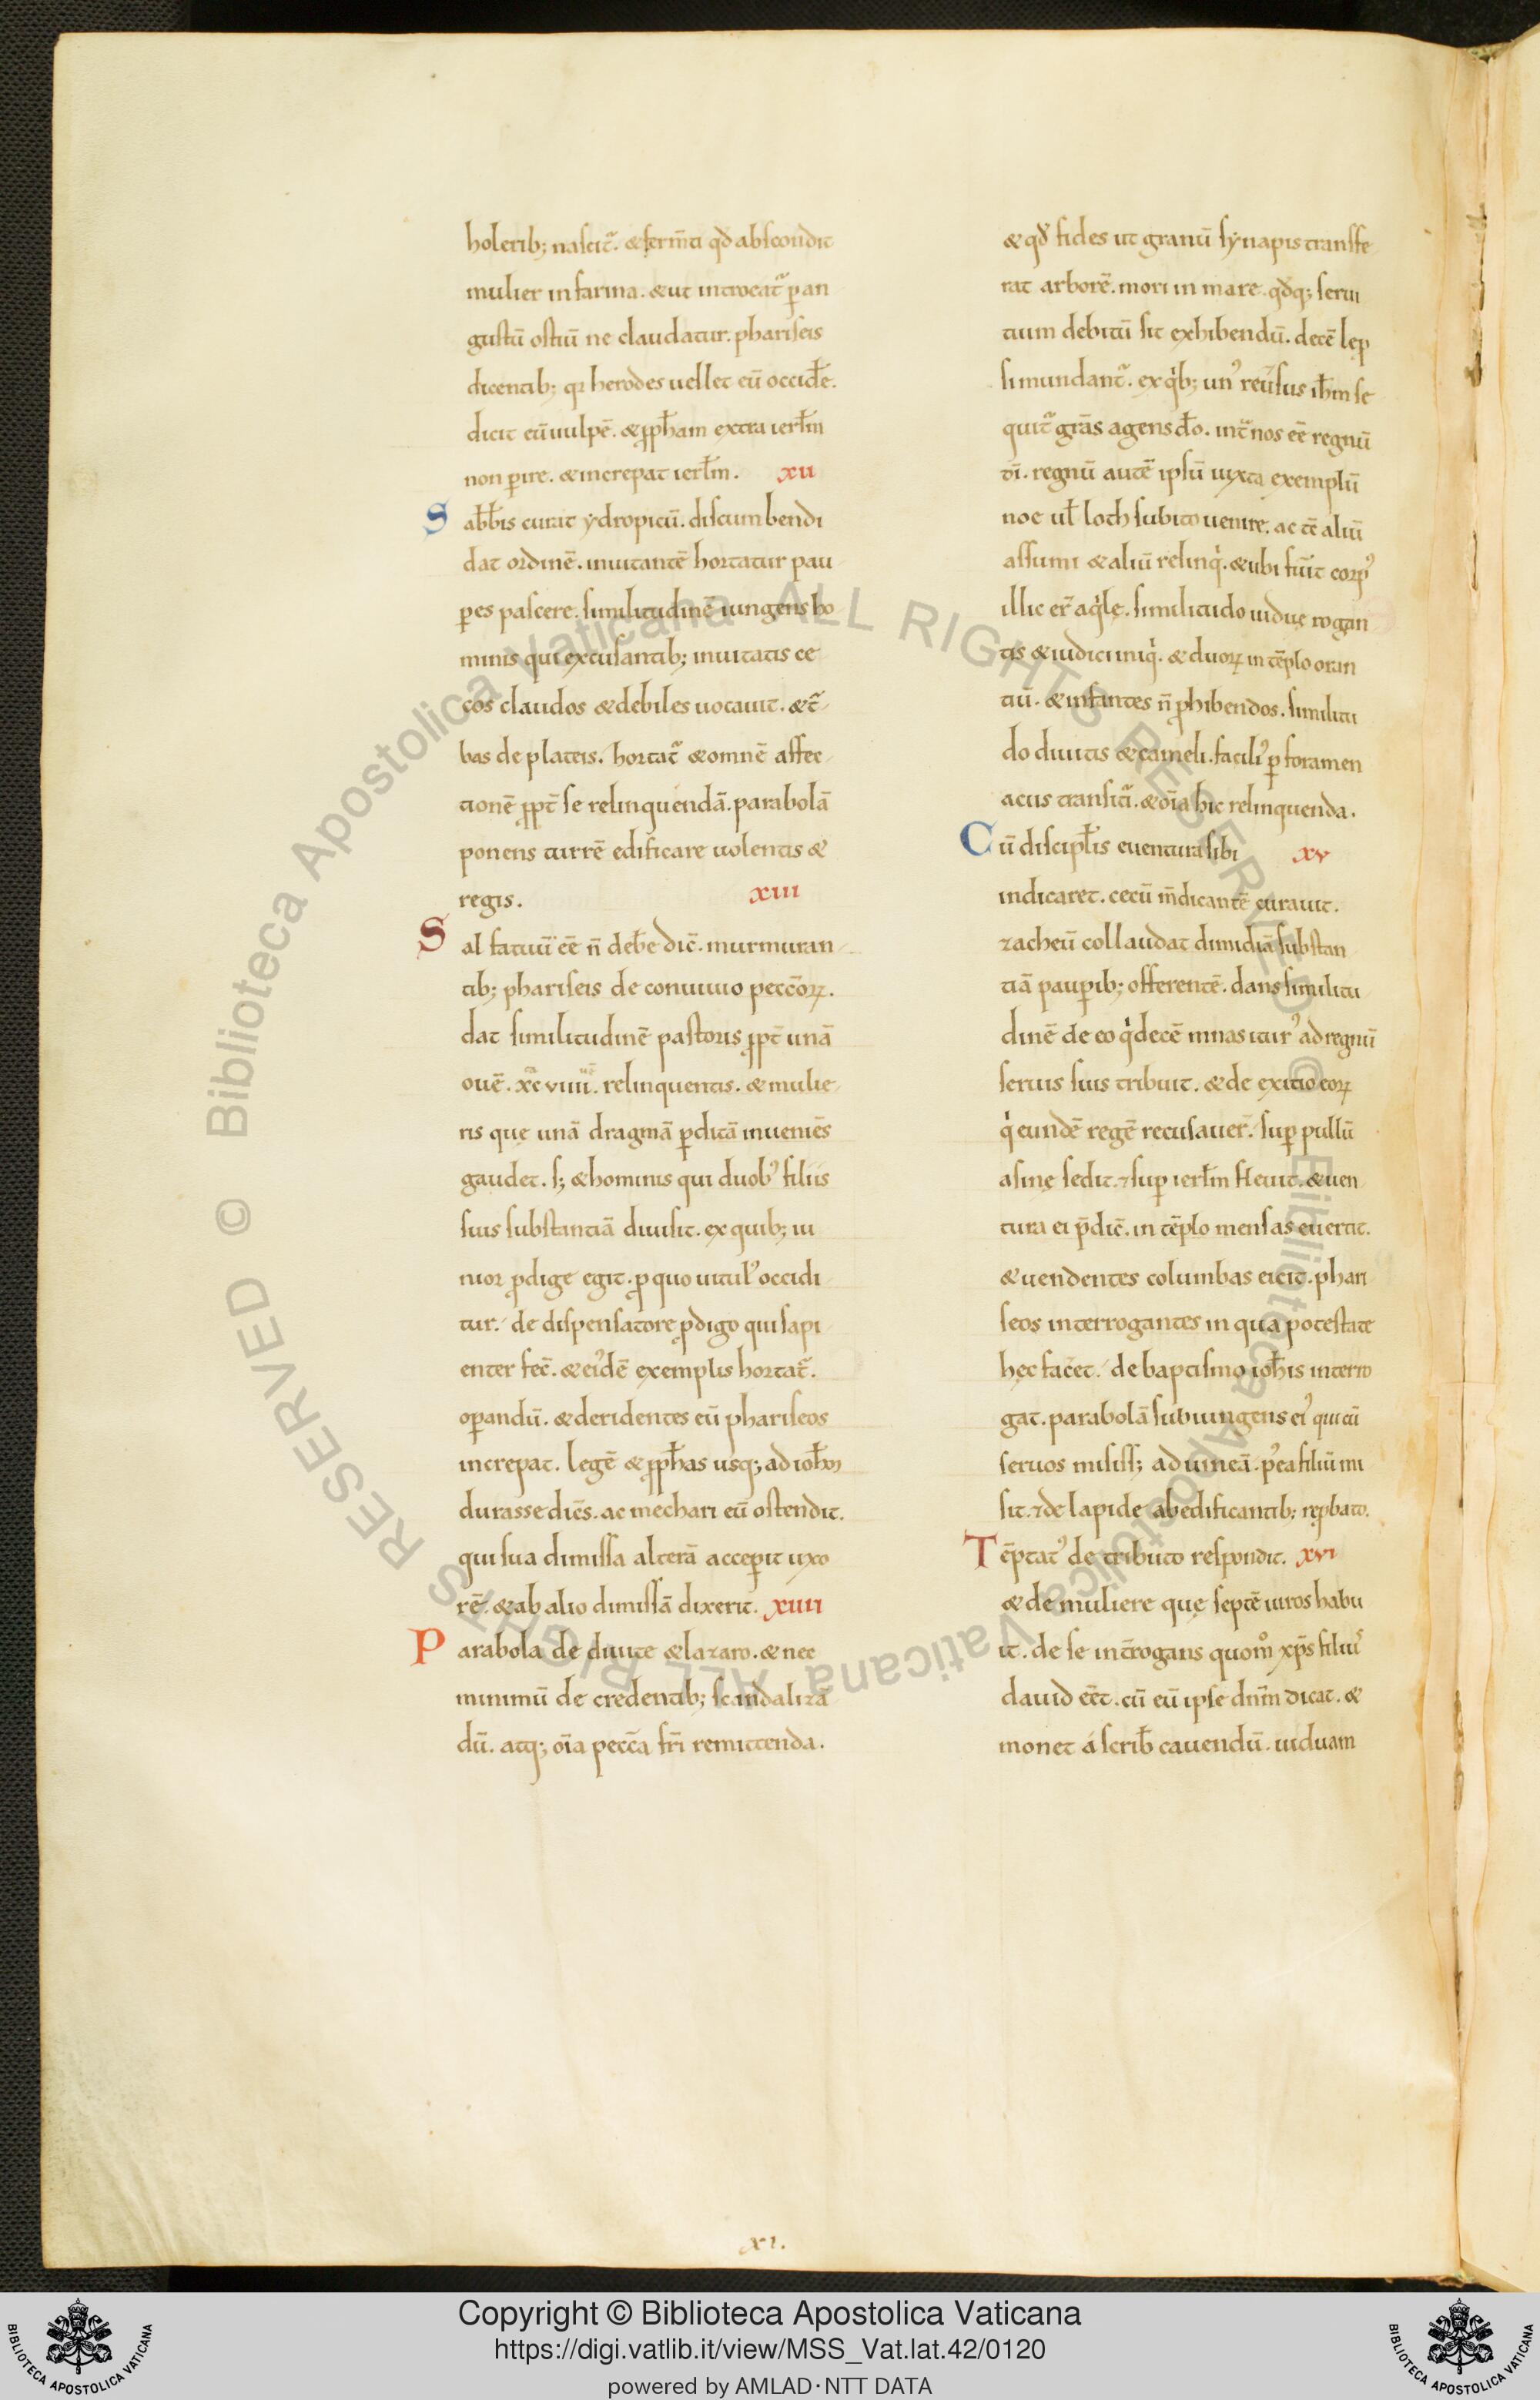 holerib; nascit᷑. & ferm̅ti qđ abscondit
mulier in farina. & ut introeat᷑ ꝑ an
gustū ostiū ne claudatur. phariseis
dicentib; qꝛ herodes uellet eū occiđe.
dicit eū uulpē. & ꝓph̅am extra ierłm
non ꝑire. & increpat ierłm. XII
Sab̅b̅is curat ydropicū. discumbendi
dat ordinē. inuitantē hortatur pau
ꝑes pascere. similitudinē iungens ho
minis qui excusantib; inuitatis ce
cos claudos & debiles uocauit. & t᷑
bas de plateis. hortat᷑ & omnē affec
tionē ꝓpt̅ se relinquendā. parabolā
ponens turrē edificare uolentis &
regis. XIII
Sal fatuū eē n̅ deƀe dic̅. murmuran
tib; phariseis de conuiuio pecc̅oꝝ.
dat similitudinē pastoris ꝓpt̅ unā
ouē. xc viiii. relinquentis. & mulie
ris quę unā dragmā ꝑditā inueniēs
gaudet. s; & hominis qui duobꝰ filiis
suis substantiā diuisit. ex quib; iu
nior ꝓdige egit. ꝓ quo uitulꝰ occidi
tur. de dispensatore ꝓdigo qui sapi
enter fec̅. & eiꝰdē exemplis hortat᷑.
oꝑandū. & deridentes eū phariseos
increpat. legē & ꝓph̅as usq; ad ioh̅m
durasse dic̅s. ac mechari eū ostendit.
qui sua dimissa alterā acceꝑit uxo
rē. & ab alio dimissā dixerit. XIIII
Parabola de diuite & lazaro. & nec
minimū de credentib; scandalizā
dū. atq; oīa pecc̅a fr̅i remittenda.
& qđ fides ut granū synapis transfe
rat arborē. mori in mare. qđq; serui
tium debitū sit exhibendū. decē lep
si mundant᷑. ex qⁱb; unꝰ reu̅sus ih̅m se
quit᷑ gr̅as agens đo. int᷑ nos eē regnū
d̅i. regnū autē ipsū iuxta exemplū
noe uł loth subito uenire. ac tē aliū
assumi & aliū relinqⁱ. & ubi fu̅it corpꝰ
illic er̅ aqⁱlę. similitudo uiduę rogan
tis & iudici iniqⁱ. & duoꝝ in tēplo oran
tiū. & infantes n̅ ꝓhibendos. similitu
do diuitis & cameli. faciliꝰ ꝑ foramen
acus transit᷑. & oīa hic relinquenda.
Cū discipłis euentura sibi XV
indicaret. cecū m̅dicantē curauit.
zacheū collaudat dimidiā substan
tiā pauꝑib; offerentē. dans similitu
dinē de eo qⁱ decē mnas iturꝰ ad regnū
seruis suis tribuit. & de exitio eoꝝ
qⁱ eundē regē recusauer̅. suꝑ pullū
asinę sedit. ⁊ suꝑ ierłm fleuit. & uen
tura ei p̅dic̅. in tēplo mensas euertit.
& uendentes columbas eicit. phari
seos interrogantes in qua potestate
hęc fac̅et. de baptismo ioh̅is interro
gat. parabolā subiungens eiꝰ qui cū
seruos misiss; ad uineā. pꝰea filiū mi
sit. ⁊ de lapide ab edificantib; reꝓbato.
Tēptatꝰ de tributo respondit. XVI
& de muliere quę septē uiros habu
it. de se int̅rogans quom̊ xp̅s filiꝰ
dauid eēt. cū eū ipse dn̅m dicat. &
monet á scriƀ cauendū. uiduam
XI.
Biblioteca Apostolica Vaticana ALL RIGHTS RESERVED ©
Biblioteca Apostolica Vaticana ALL RIGHTS RESERVED ©
Copyright © Biblioteca Apostolica Vaticana
https://digi.vatlib.it/view/MSS_Vat.lat.42/0120
powered by AMLAD·NTT DATA
BIBLIOTECA APOSTOLICA VATICANA
BIBLIOTECA APOSTOLICA VATICANA